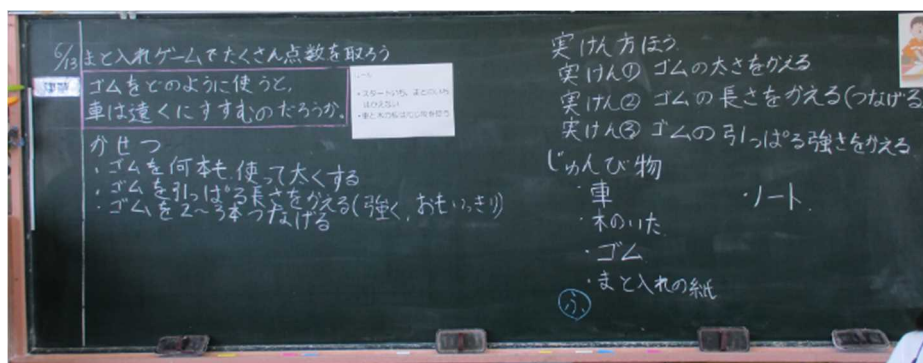 6/13 まと入れゲームでたくさん点数を取ろう
ゴムをどのように使うと、
車は遠くにすすむのだろうか。
・スタートいち、まとのいち
はかえない
かせつ
・ゴムを何本も使って太くする
・ゴムを引っぱる長さをかえる(強く、おもいっきり)
・ゴムを2〜3本つなげる
実けん方ほう
実けん① ゴムの太さをかえる
実けん② ゴムの長さをかえる(つなげる
実けん③ ゴムの引っぱる強さをかえる
じゅんび物
・車
・木のいた
・ゴム
・まと入れの紙
・ノート
ふ